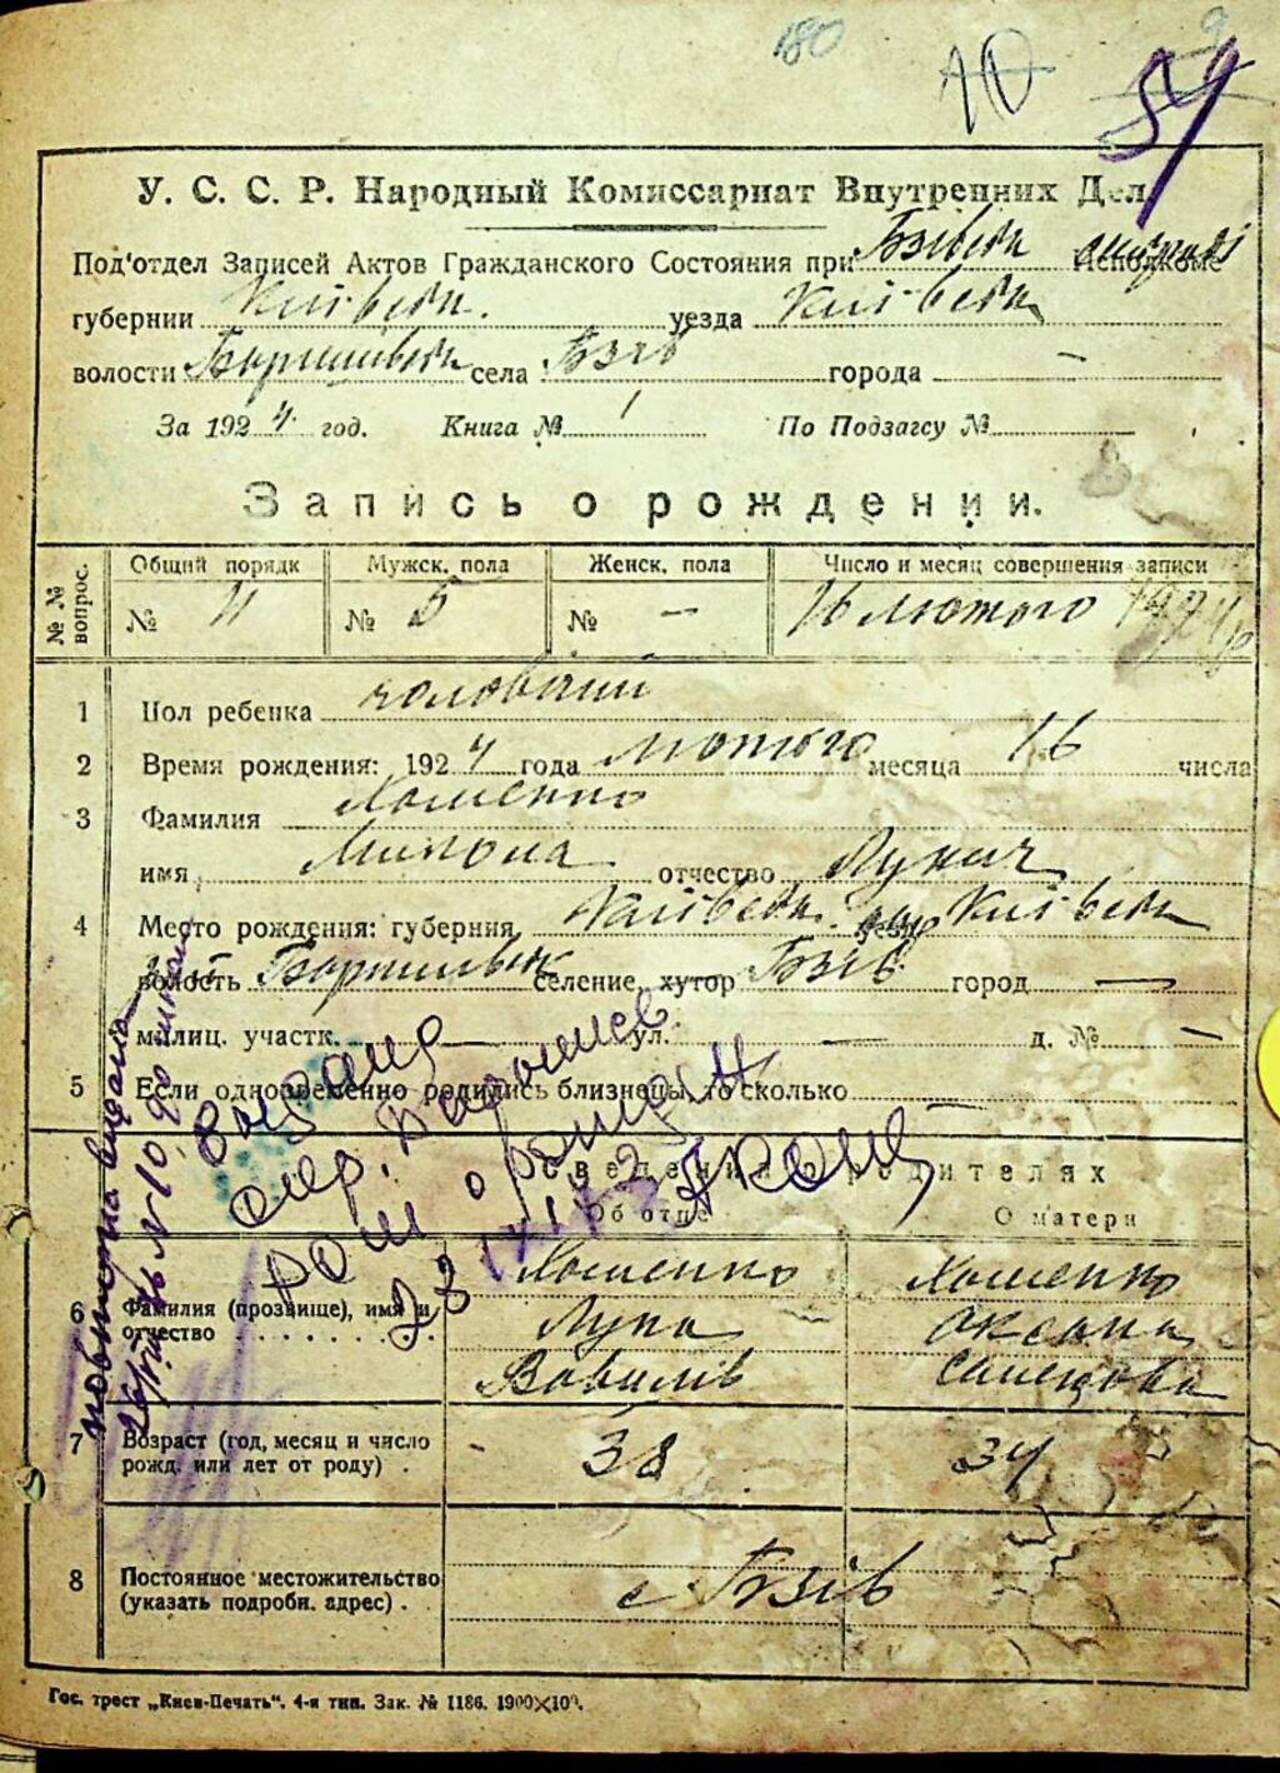 180
10
59
У. С. С. Р. Народный Комиссариат Внутренних Дел
Под'отдел Записей Актов Гражданского Состояния при Бзівськ Исполкоме
губернии Київськ. уезда Київськ
волости села Бзів города —
За 1924 год. Книга № 1 По Подзагсу №
Запись о рождении.
№№ вопрос. Общий порядк Мужск. пола Женск. пола Число и месяц совершения записи
№ 11 № 5 № — 16 лютого 1924 р
1 Пол ребенка чоловічий
2 Время рождения: 1924 года лютого месяца 16 числа
3 Фамилия Хоменко
имя Микола отчество Лукич
4 Место рождения: губерния Київськ. Київськ
волость селение, хутор Бзів город —
милиц. участк. — ул. — д. № —
5 Если одновременно родились близнецы, то сколько —
Сведения о родителях
Об отце О матери
6 Фамилия (прозвище), имя и отчество
Хоменко Хоменко
Лука Оксана
Вавилів
7 Возраст (год, месяц и число рожд. или лет от роду) .
38 34
8 Постоянное местожительство (указать подробн. адрес) .
с Бзів
повторна видана
Гос. трест „Киев-Печать“. 4-я тип. Зак. № 1186. 1900×100.